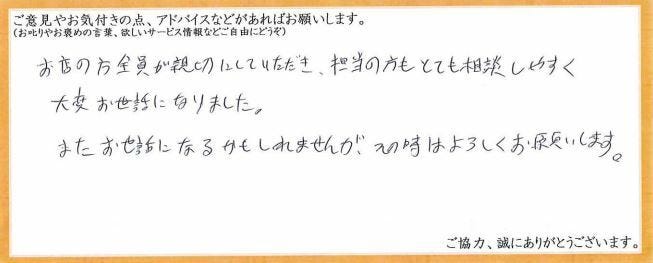 ご意見やお気付きの点、アドバイスなどがあればお願いします。
(お叱りやお褒めの言葉、欲しいサービス情報などご自由にどうぞ)
お店の方全員が親切にしていただき、担当の方もとても相談しやすく
大変お世話になりました。
またお世話になるかもしれませんが、その時はよろしくお願いします。
ご協力、誠にありがとうございます。